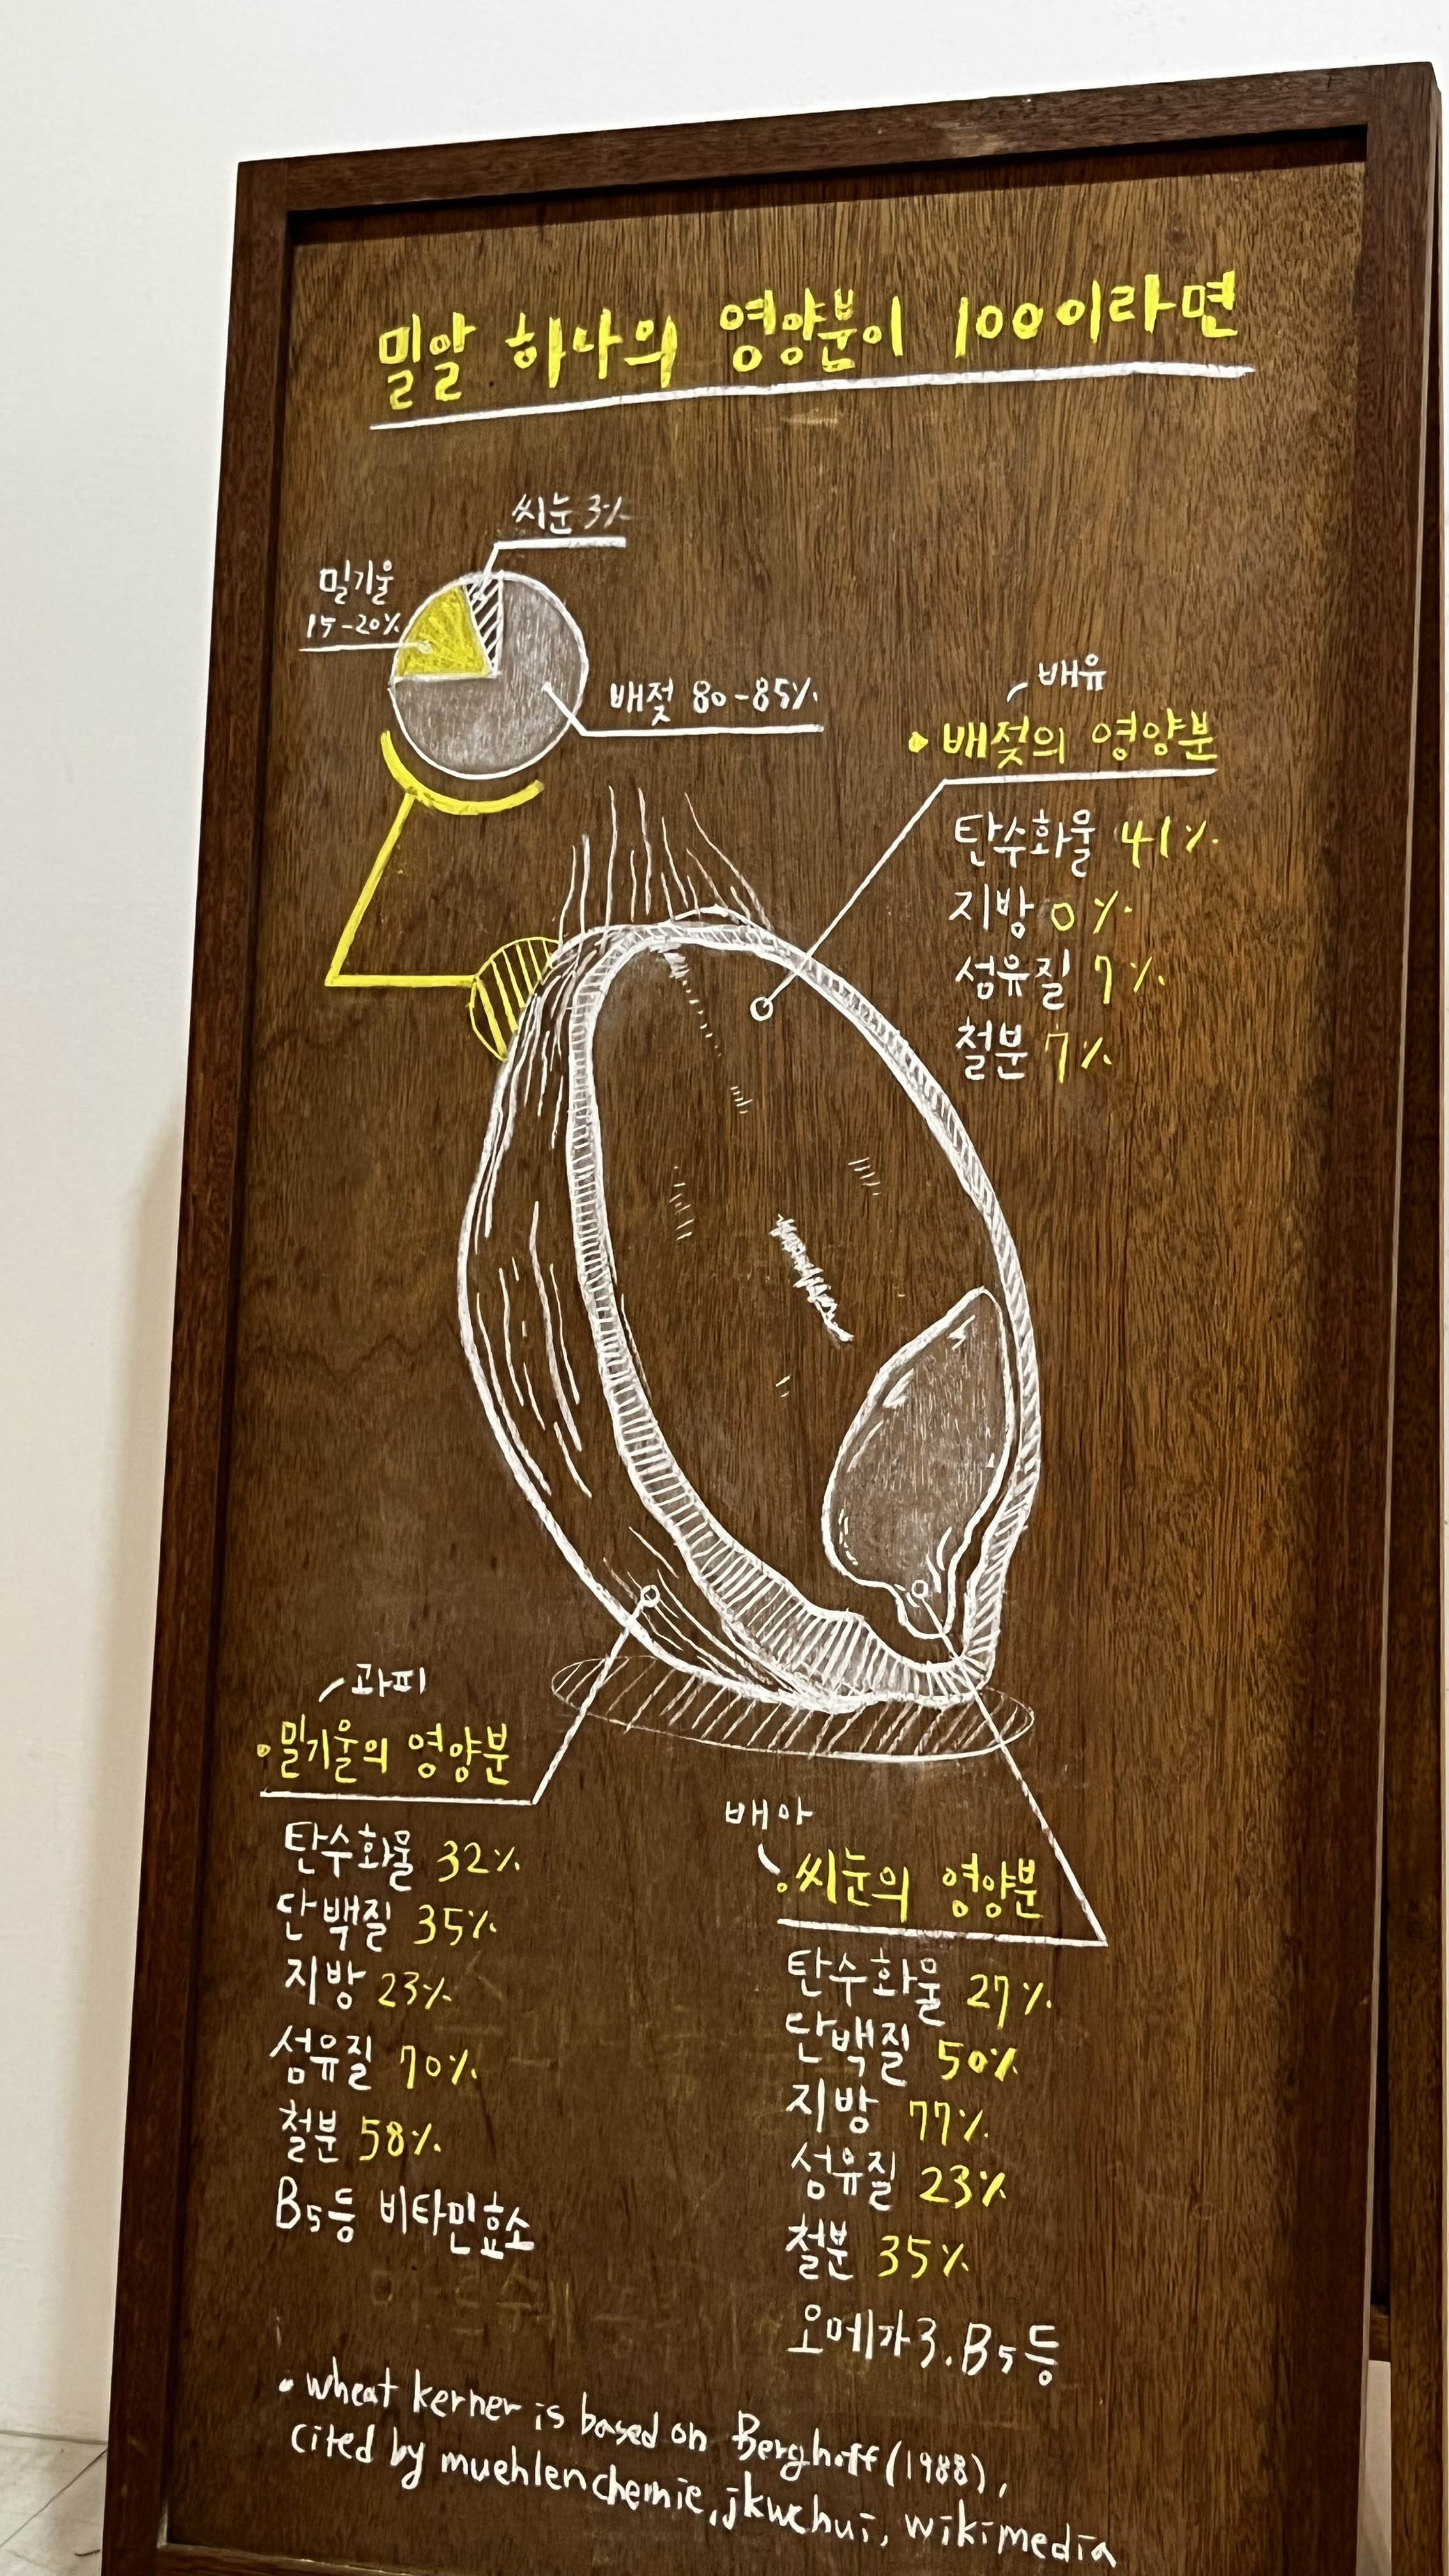 밀알 하나의 영양분이 100이라면
씨눈 3%
밀기울
15-20%
배젖 80-85%
배유
• 배젖의 영양분
탄수화물 41%
지방 0%
섬유질 7%
철분 7%
과피
• 밀기울의 영양분
탄수화물 32%
단백질 35%
지방 23%
섬유질 70%
철분 58%
B5등 비타민효소
배아
• 씨눈의 영양분
탄수화물 27%
단백질 50%
지방 77%
섬유질 23%
철분 35%
오메가3. B5등
• wheat kerner is based on Berghoff (1988),
cited by muehlenchemie, jkwchui, wikimedia